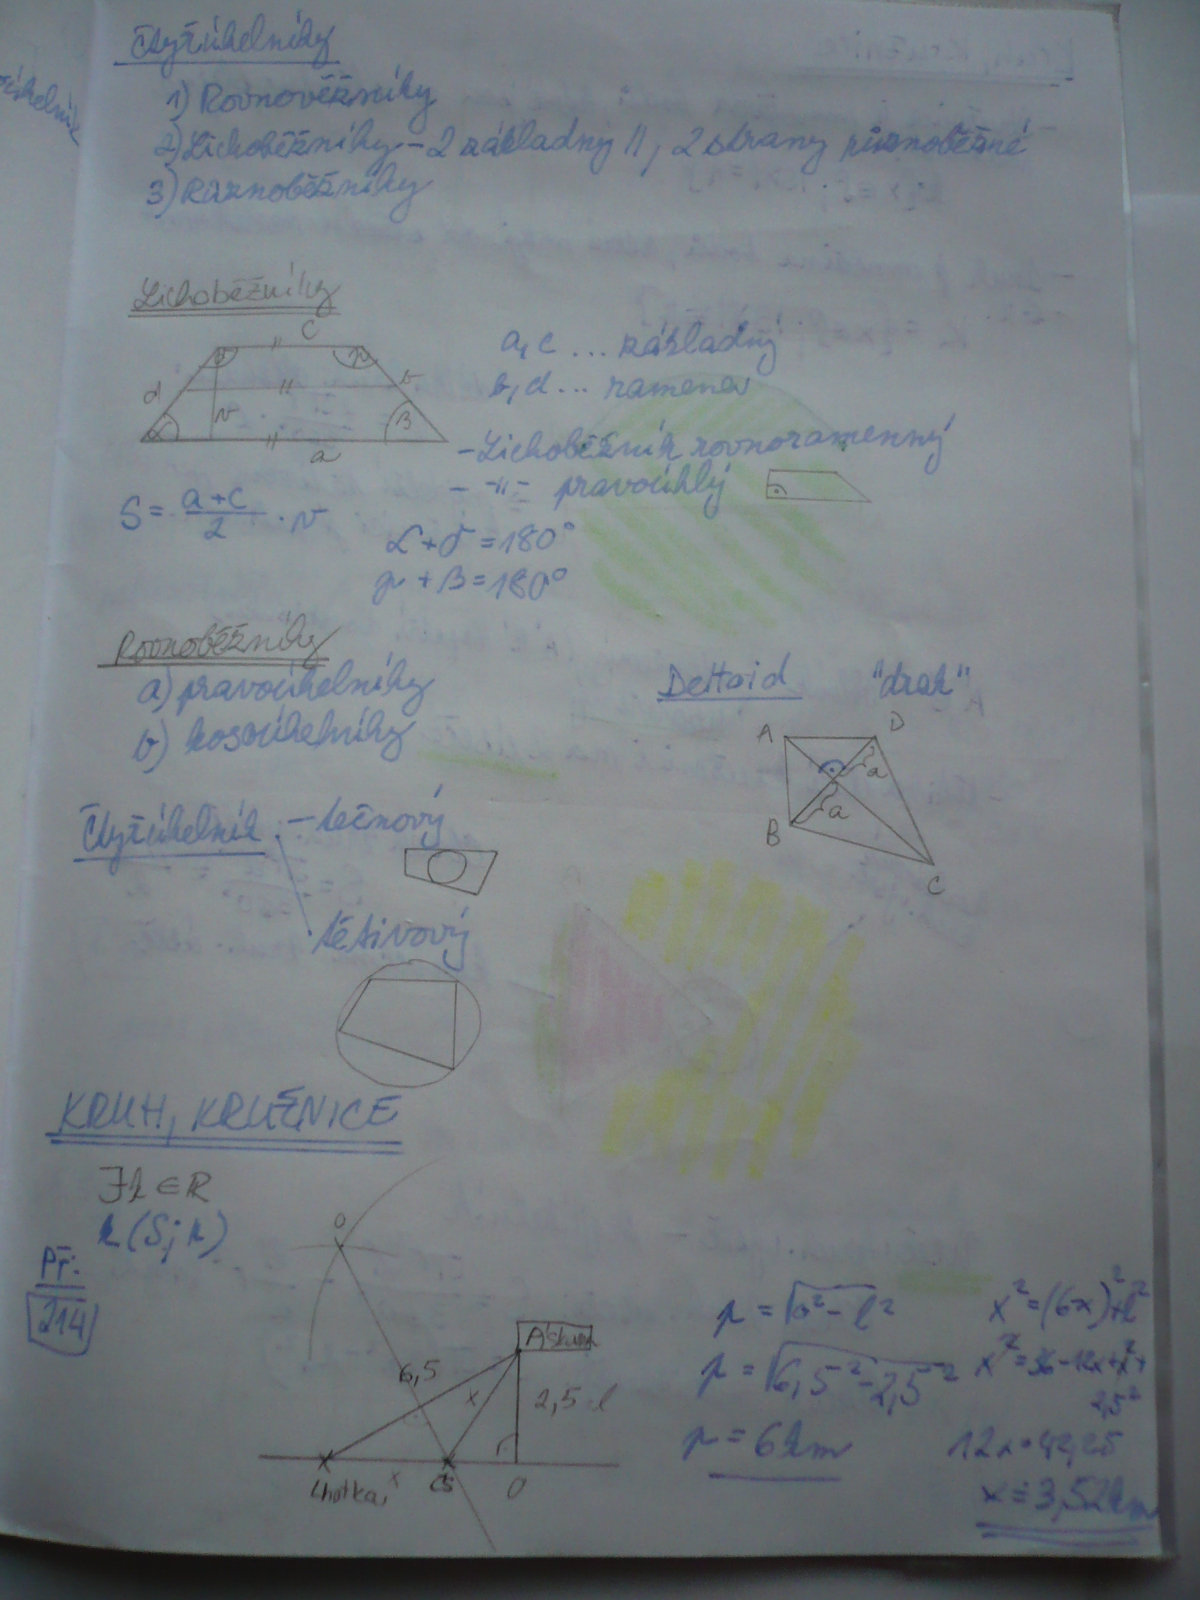 Čtyřúhelníky
1) Rovnoběžníky
2) Lichoběžníky - 2 základny ||, 2 strany různoběžné
3) Různoběžníky
Lichoběžníky
c
d
v
b
β
a
a, c ... základny
b, d ... ramena
- Lichoběžník rovnoramenný
- -||- pravoúhlý
S = (a+c)/2 · v
α + δ = 180°
γ + β = 180°
Rovnoběžníky
a) pravoúhelníky
b) kosoúhelníky
Deltoid "drak"
A D
a
a
B
C
Čtyřúhelník - tečnový
tětivový
KRUH, KRUŽNICE
k (S; r)
Př:
214
O
6,5
x
2,5 l
Lhotka
x
ČS
O
p = √o² - l²
p = √6,5² - 2,5²
p = 6 km
x² = (6-x)² + l²
x² = 36 - 12x + x² +
2,5²
12x = 42,25
x = 3,52 km